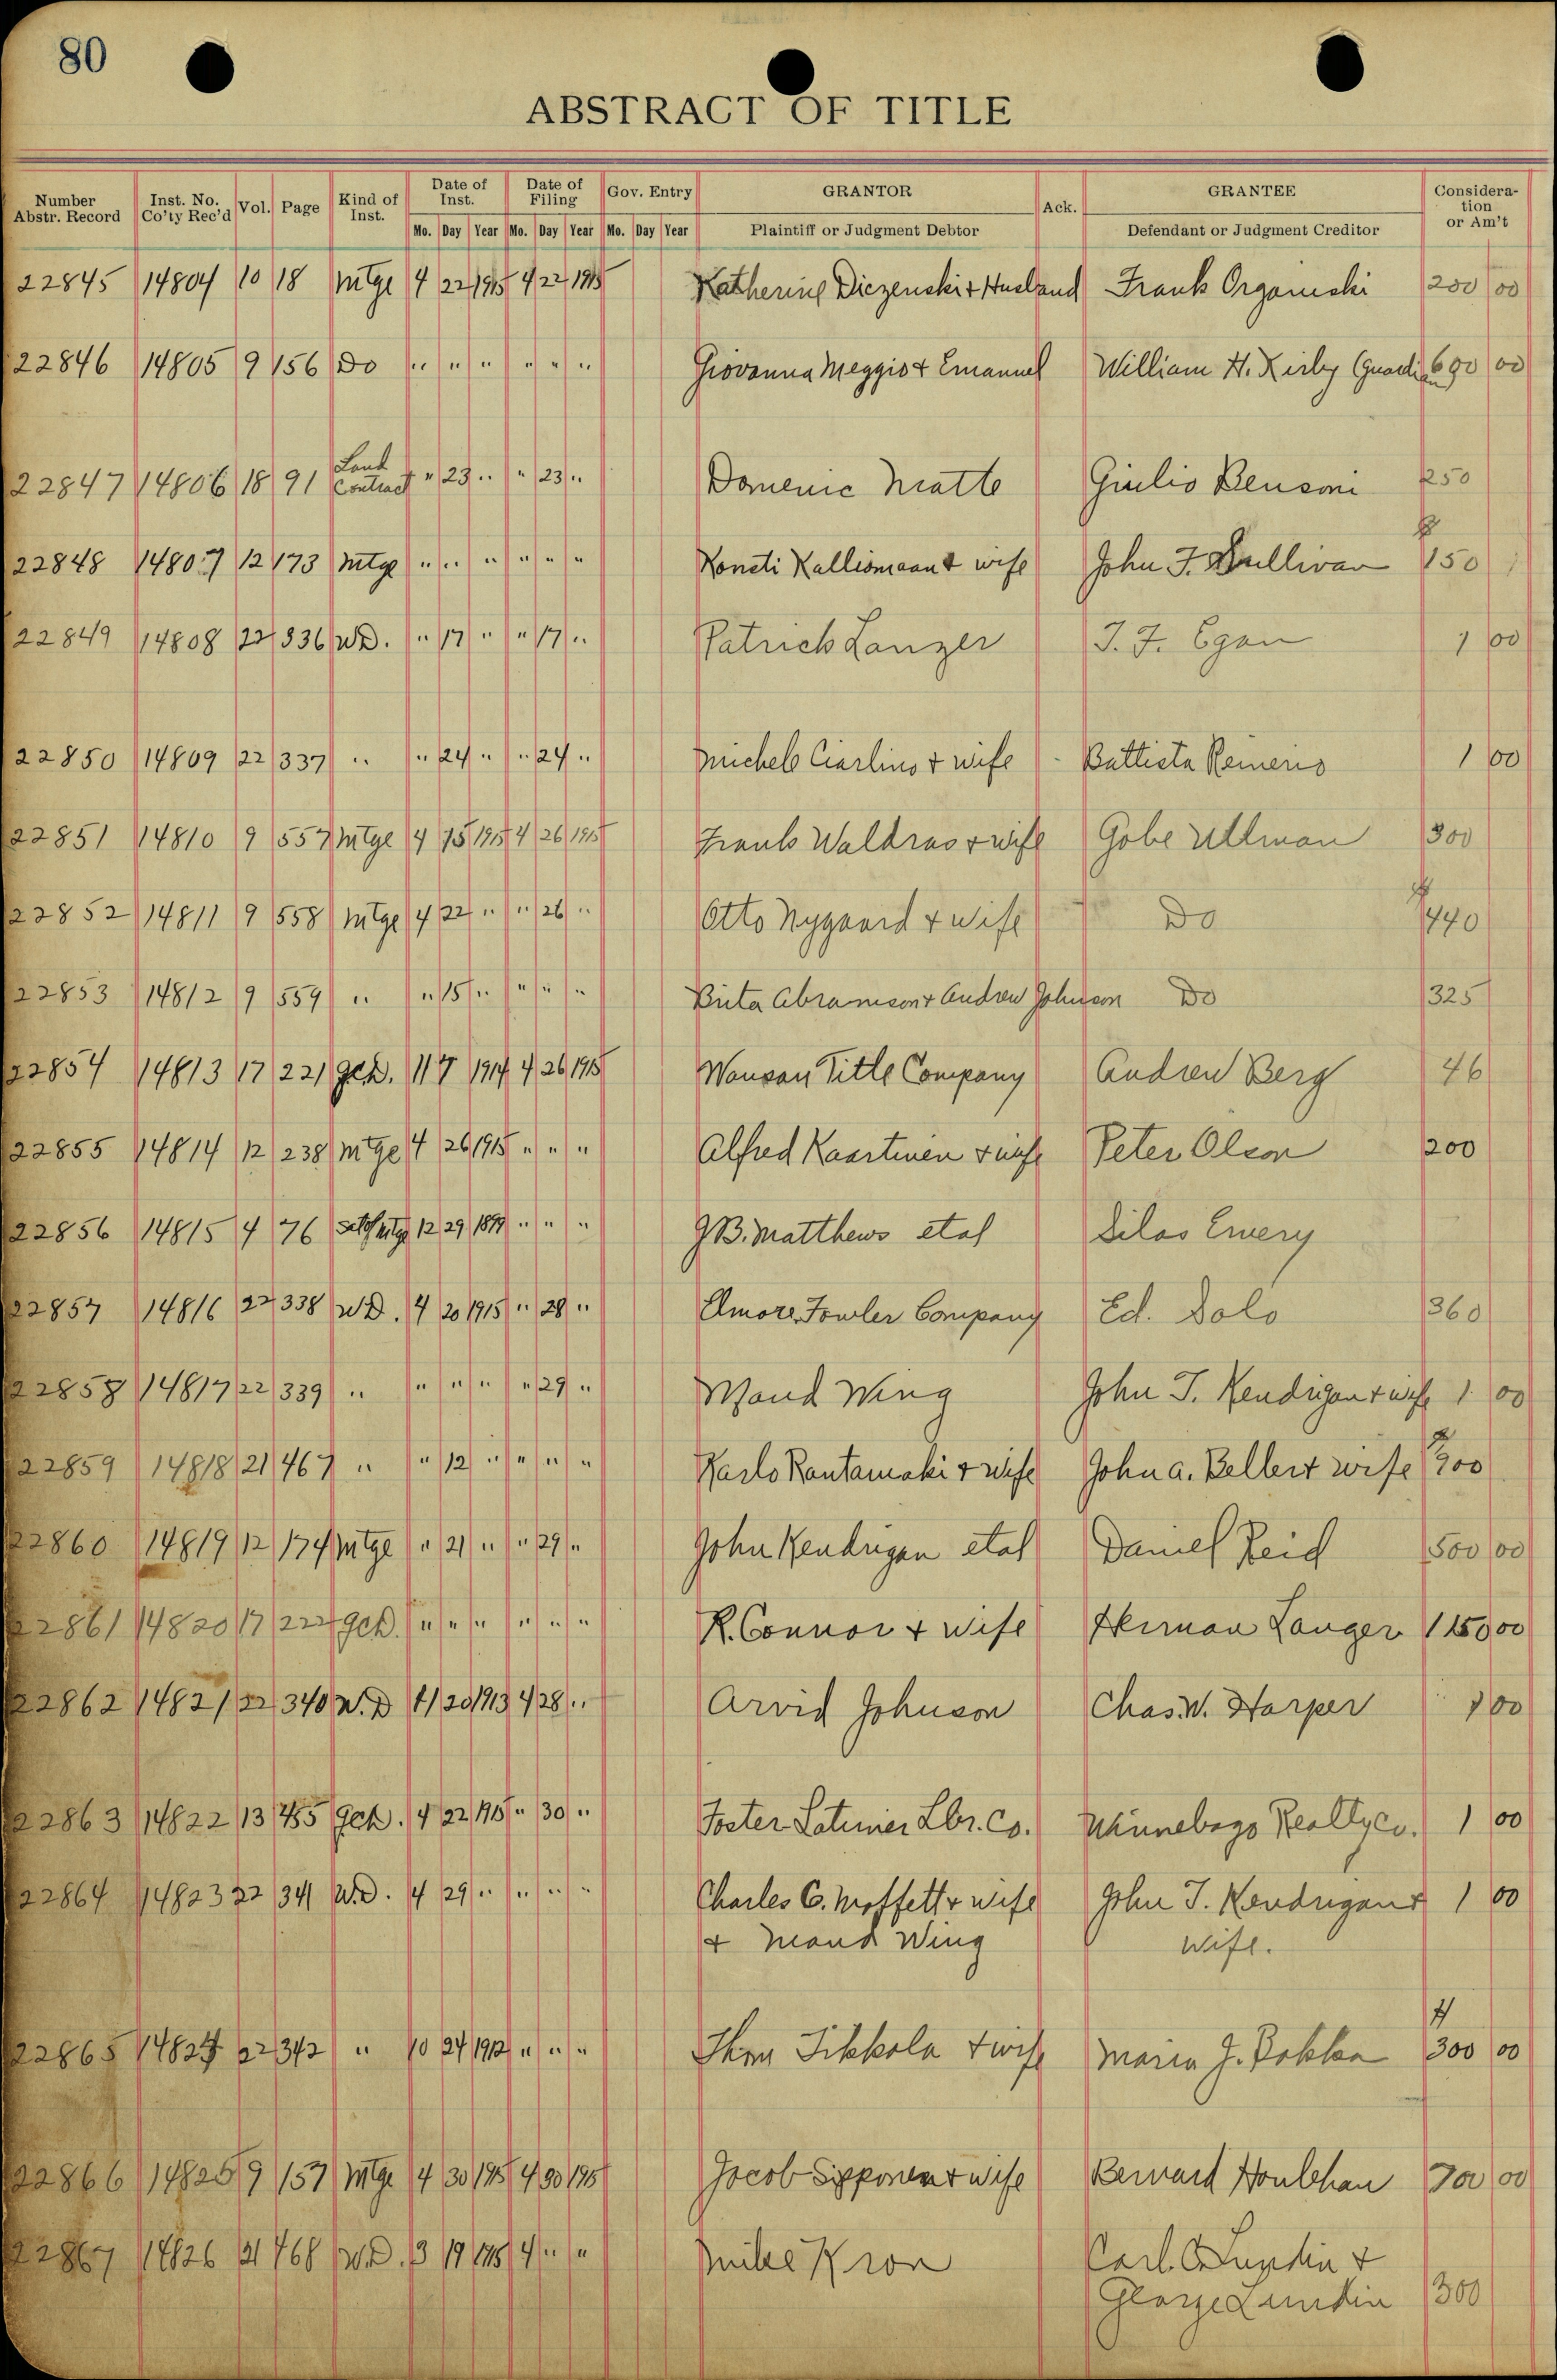 80
ABSTRACT OF TITLE
Number Abstr. Record Inst. No. Co'ty Rec'd Vol. Page Kind of Inst. Date of Inst. Date of Filing Gov. Entry GRANTOR Ack. GRANTEE Consideration or Am't
Mo. Day Year Mo. Day Year Mo. Day Year Plaintiff or Judgment Debtor Defendant or Judgment Creditor
22845 14804 10 18 Mtge 4 22 1915 4 22 1915 Katherine Diczenski + Husband Frank Organiski 200 00
22846 14805 9 156 Do " " " " " " Giovanna Meggio + Emanuel William H. Kirby (Guardian) 600 00
22847 14806 18 91 Land Contract " 23 " " 23 " Domenic Matte Giulio Bensoni 250
22848 14807 12 173 Mtge " " " " " " Konsti Kalliomaa + wife John F. Sullivan 150
22849 14808 22 336 WD. " 17 " " 17 " Patrick Lanzer T. F. Egan 1 00
22850 14809 22 337 " " 24 " " 24 " Michele Ciarlino + wife Battista Reinerio 1 00
22851 14810 9 557 Mtge 4 15 1915 4 26 1915 Frank Waldras + wife Gobe Ullman 300
22852 14811 9 558 Mtge 4 22 " " 26 " Otto Nygaard + wife Do 440
22853 14812 9 559 " " 15 " " " " Brita Abramson + Andrew Johnson Do 325
22854 14813 17 221 QCD. 11 7 1914 4 26 1915 Wausau Title Company Andrew Berg 46
22855 14814 12 238 Mtge 4 26 1915 " " " Alfred Kaartinen + wife Peter Olson 200
22856 14815 4 76 Satof Mtge 12 29 1899 " " " J B. Matthews etal Silas Emery
22857 14816 22 338 WD. 4 20 1915 " 28 " Elmore Fowler Company Ed. Salo 360
22858 14817 22 339 " " " " " 29 " Maud Wing John T. Kendrigan + wife 1 00
22859 14818 21 467 " " 12 " " " " Karlo Rantamaki + wife John A. Beller + wife 900
22860 14819 12 174 Mtge " 21 " " 29 " John Kendrigan etal Daniel Reid 500 00
22861 14820 17 222 QCD. " " " " " " R. Connor + wife Herman Langer 1150 00
22862 14821 22 340 W.D 4 20 1913 4 28 " Arvid Johnson Chas. W. Harper 1 00
22863 14822 13 455 QCD. 4 22 1915 " 30 " Foster Latimer Lbr. Co. Winnebago Realty Co. 1 00
22864 14823 22 341 W.D. 4 29 " " " " Charles C. Moffett + wife John T. Kendrigan + 1 00
+ Maud Wing wife.
22865 14824 22 342 " 10 24 1912 " " " Thom Tikkola + wife Maria J. Pokkla 300 00
22866 14825 9 157 Mtge 4 30 1915 4 30 1915 Jacob Sipponen + wife Bernard Houlehan 700 00
22867 14826 21 468 W.D. 3 19 1915 4 " " Mike Kron Carl. O. Lundin +
George Lundin 300